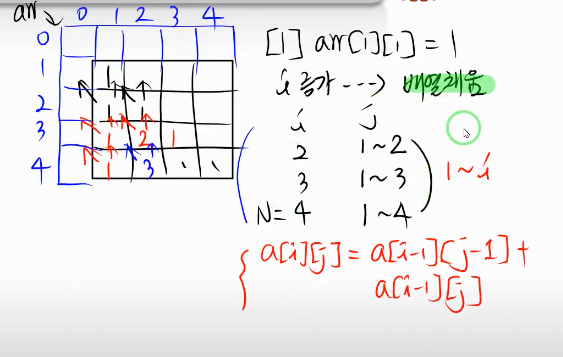 arr 0 1 2 3 4
0
1 1
2 1 1
3 1 2 1
4 1 3
[1] arr[1][1] = 1
i 증가 ---> 배열채움
i j
2 1~2
3 1~3
N=4 1~4
1~i
a[i][j] = a[i-1][j-1] +
a[i-1][j]